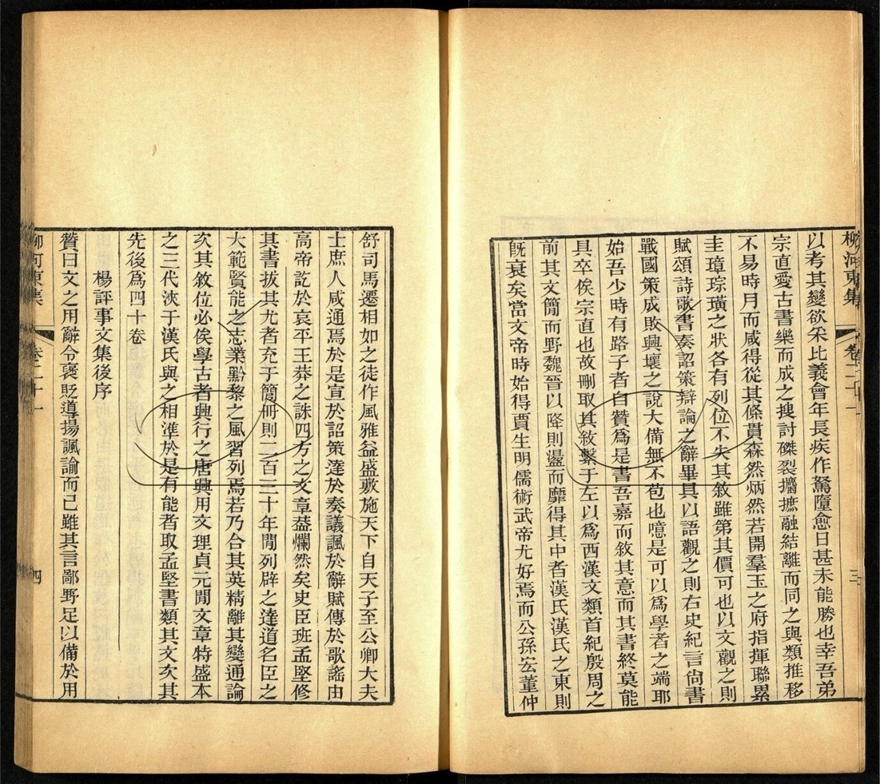 柳河東集
卷二十一
三
以考其變欲采比義會年長疾作駑墮愈日甚未能勝也幸吾弟
宗直愛古書樂而成之搜討磔裂攟摭融結離而同之與類推移
不易時月而咸得從其條貫森然炳然若開羣玉之府指揮聯累
圭璋琮璜之狀各有列位不失其敘雖第其價可也以文觀之則
賦頌詩歌書奏詔策辯論之辭畢具以語觀之則右史紀言尙書
戰國策成敗興壞之說大備無不苞也噫是可以爲學者之端耶
始吾少時有路子者自贊爲是書吾嘉而敘其意而其書終莫能
具卒俟宗直也故刪取其敘繫于左以爲西漢文類首紀殷周之
前其文簡而野魏晉以降則盪而靡得其中者漢氏漢氏之東則
旣衰矣當文帝時始得賈生明儒術武帝尤好焉而公孫宏董仲
舒司馬遷相如之徒作風雅益盛敷施天下自天子至公卿大夫
士庶人咸通焉於是宣於詔策達於奏議諷於辭賦傳於歌謠由
高帝訖於哀平王莽之誅四方之文章蓋爛然矣史臣班孟堅修
其書拔其尤者充于簡冊則二百三十年閒列辟之達道名臣之
大範賢能之志業黔黎之風習列焉若乃合其英精離其變通論
次其敘位必俟學古者興行之唐興用文理貞元閒文章特盛本
之三代浹于漢氏與之相準於是有能者取孟堅書類其文次其
先後爲四十卷
楊評事文集後序
贊曰文之用辭令褒貶導揚諷諭而已雖其言鄙野足以備於用
柳河東集
卷二十一
四